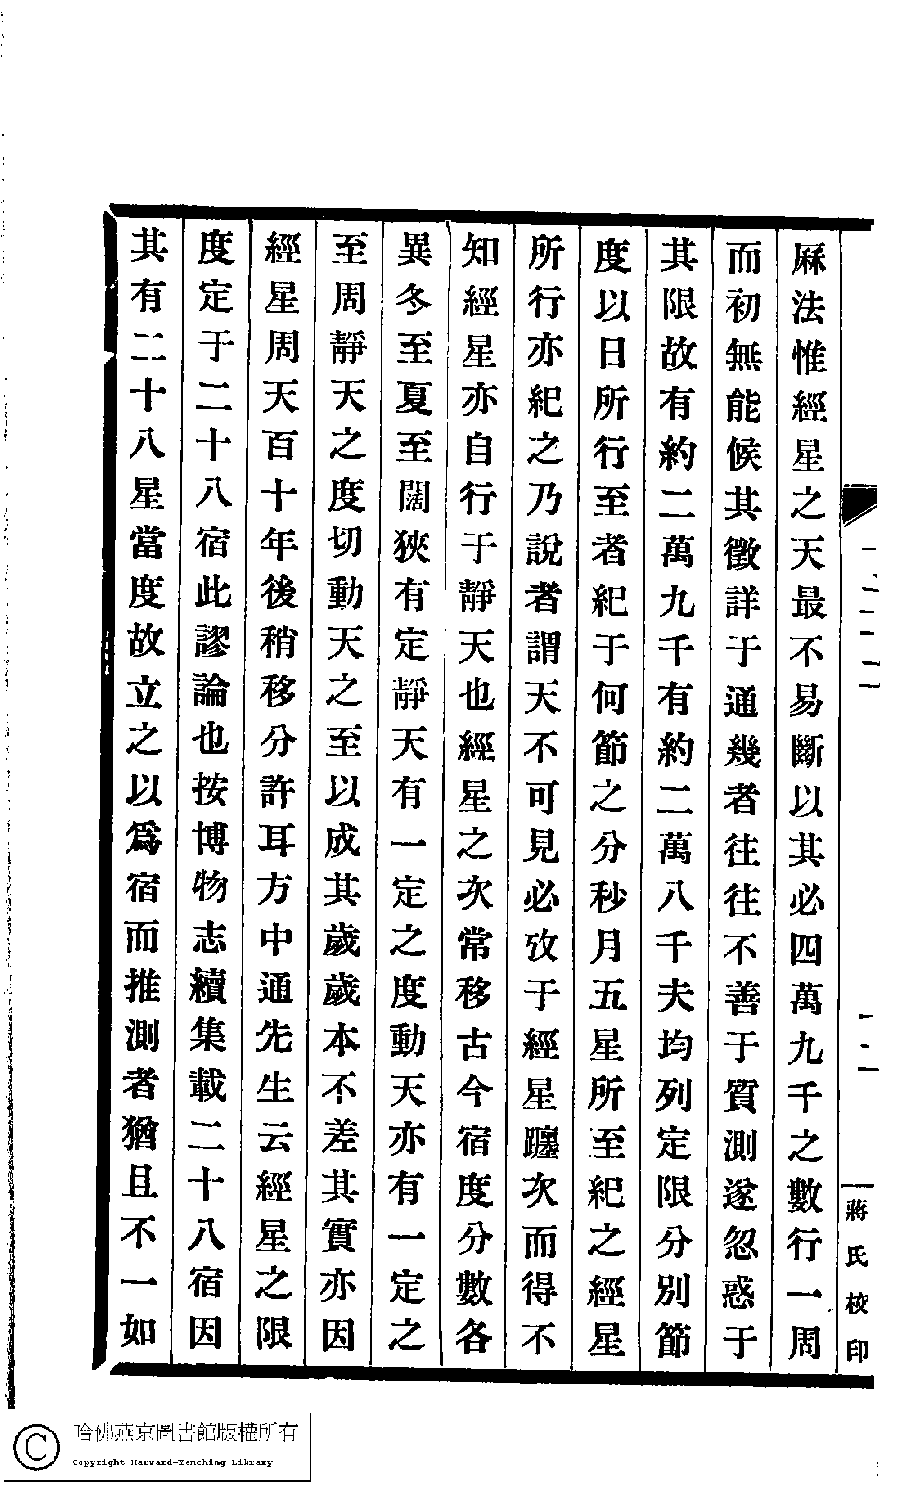 厤法惟經星之天最不易斷以其必四萬九千之數行一周
而初無能候其徵詳于通幾者往往不善于質測遂忽惑于
其限故有約二萬九千有約二萬八千夫均列定限分別節
度以日所行至者紀于何節之分秒月五星所至紀之經星
所行亦紀之乃說者謂天不可見必攷于經星躔次而得不
知經星亦自行于靜天也經星之次常移古今宿度分數各
異冬至夏至闊狹有定靜天有一定之度動天亦有一定之
至周靜天之度切動天之至以成其歲歲本不差其實亦因
經星周天百十年後稍移分許耳方中通先生云經星之限
度定于二十八宿此謬論也按博物志續集載二十八宿因
其有二十八星當度故立之以爲宿而推測者猶且不一如
蔣氏校印
哈佛燕京圖書館版權所有
Copyright Harvard-Yenching Library